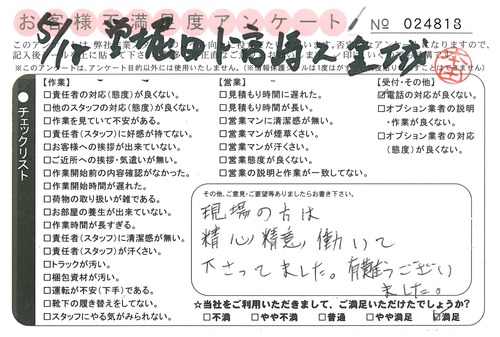 お客様不満足度アンケート
№ 024818
5/15
【作業】
□責任者の対応(態度)が良くない。
□他のスタッフの対応(態度)が良くない。
□作業を見ていて不安がある。
□責任者(スタッフ)に好感が持てない。
□お客様への挨拶が出来ていない。
□ご近所への挨拶・気遣いが無い。
□作業開始前の内容確認がなかった。
□作業開始時間が遅れた。
□荷物の取り扱いが雑である。
□お部屋の養生が出来ていない。
□作業時間が長すぎる。
□責任者(スタッフ)に清潔感が無い。
□責任者(スタッフ)が汗くさい。
□トラックが汚い。
□梱包資材が汚い。
□運転が不安(下手)である。
□靴下の履き替えをしてない。
□スタッフにやる気がみられない。
【営業】
□見積もり時間に遅れた。
□見積もり時間が長い。
□営業マンに清潔感が無い。
□営業マンが煙草くさい。
□営業マンが汗くさい。
□営業態度が良くない。
□営業の説明と作業が一致してない。
【受付・その他】
□電話の対応が良くない。
□オプション業者の説明
・作業が良くない。
□オプション業者の対応
(態度)が良くない。
●チェックリスト
その他、ご意見・ご要望等ありましたらお書き下さい。
現場の方は
精心精意、働いて
下さってました。有難うござい
ました。
☆当社をご利用いただきまして、ご満足いただけたでしょうか?
□不満 □やや不満 □普通 □やや満足 ☑満足